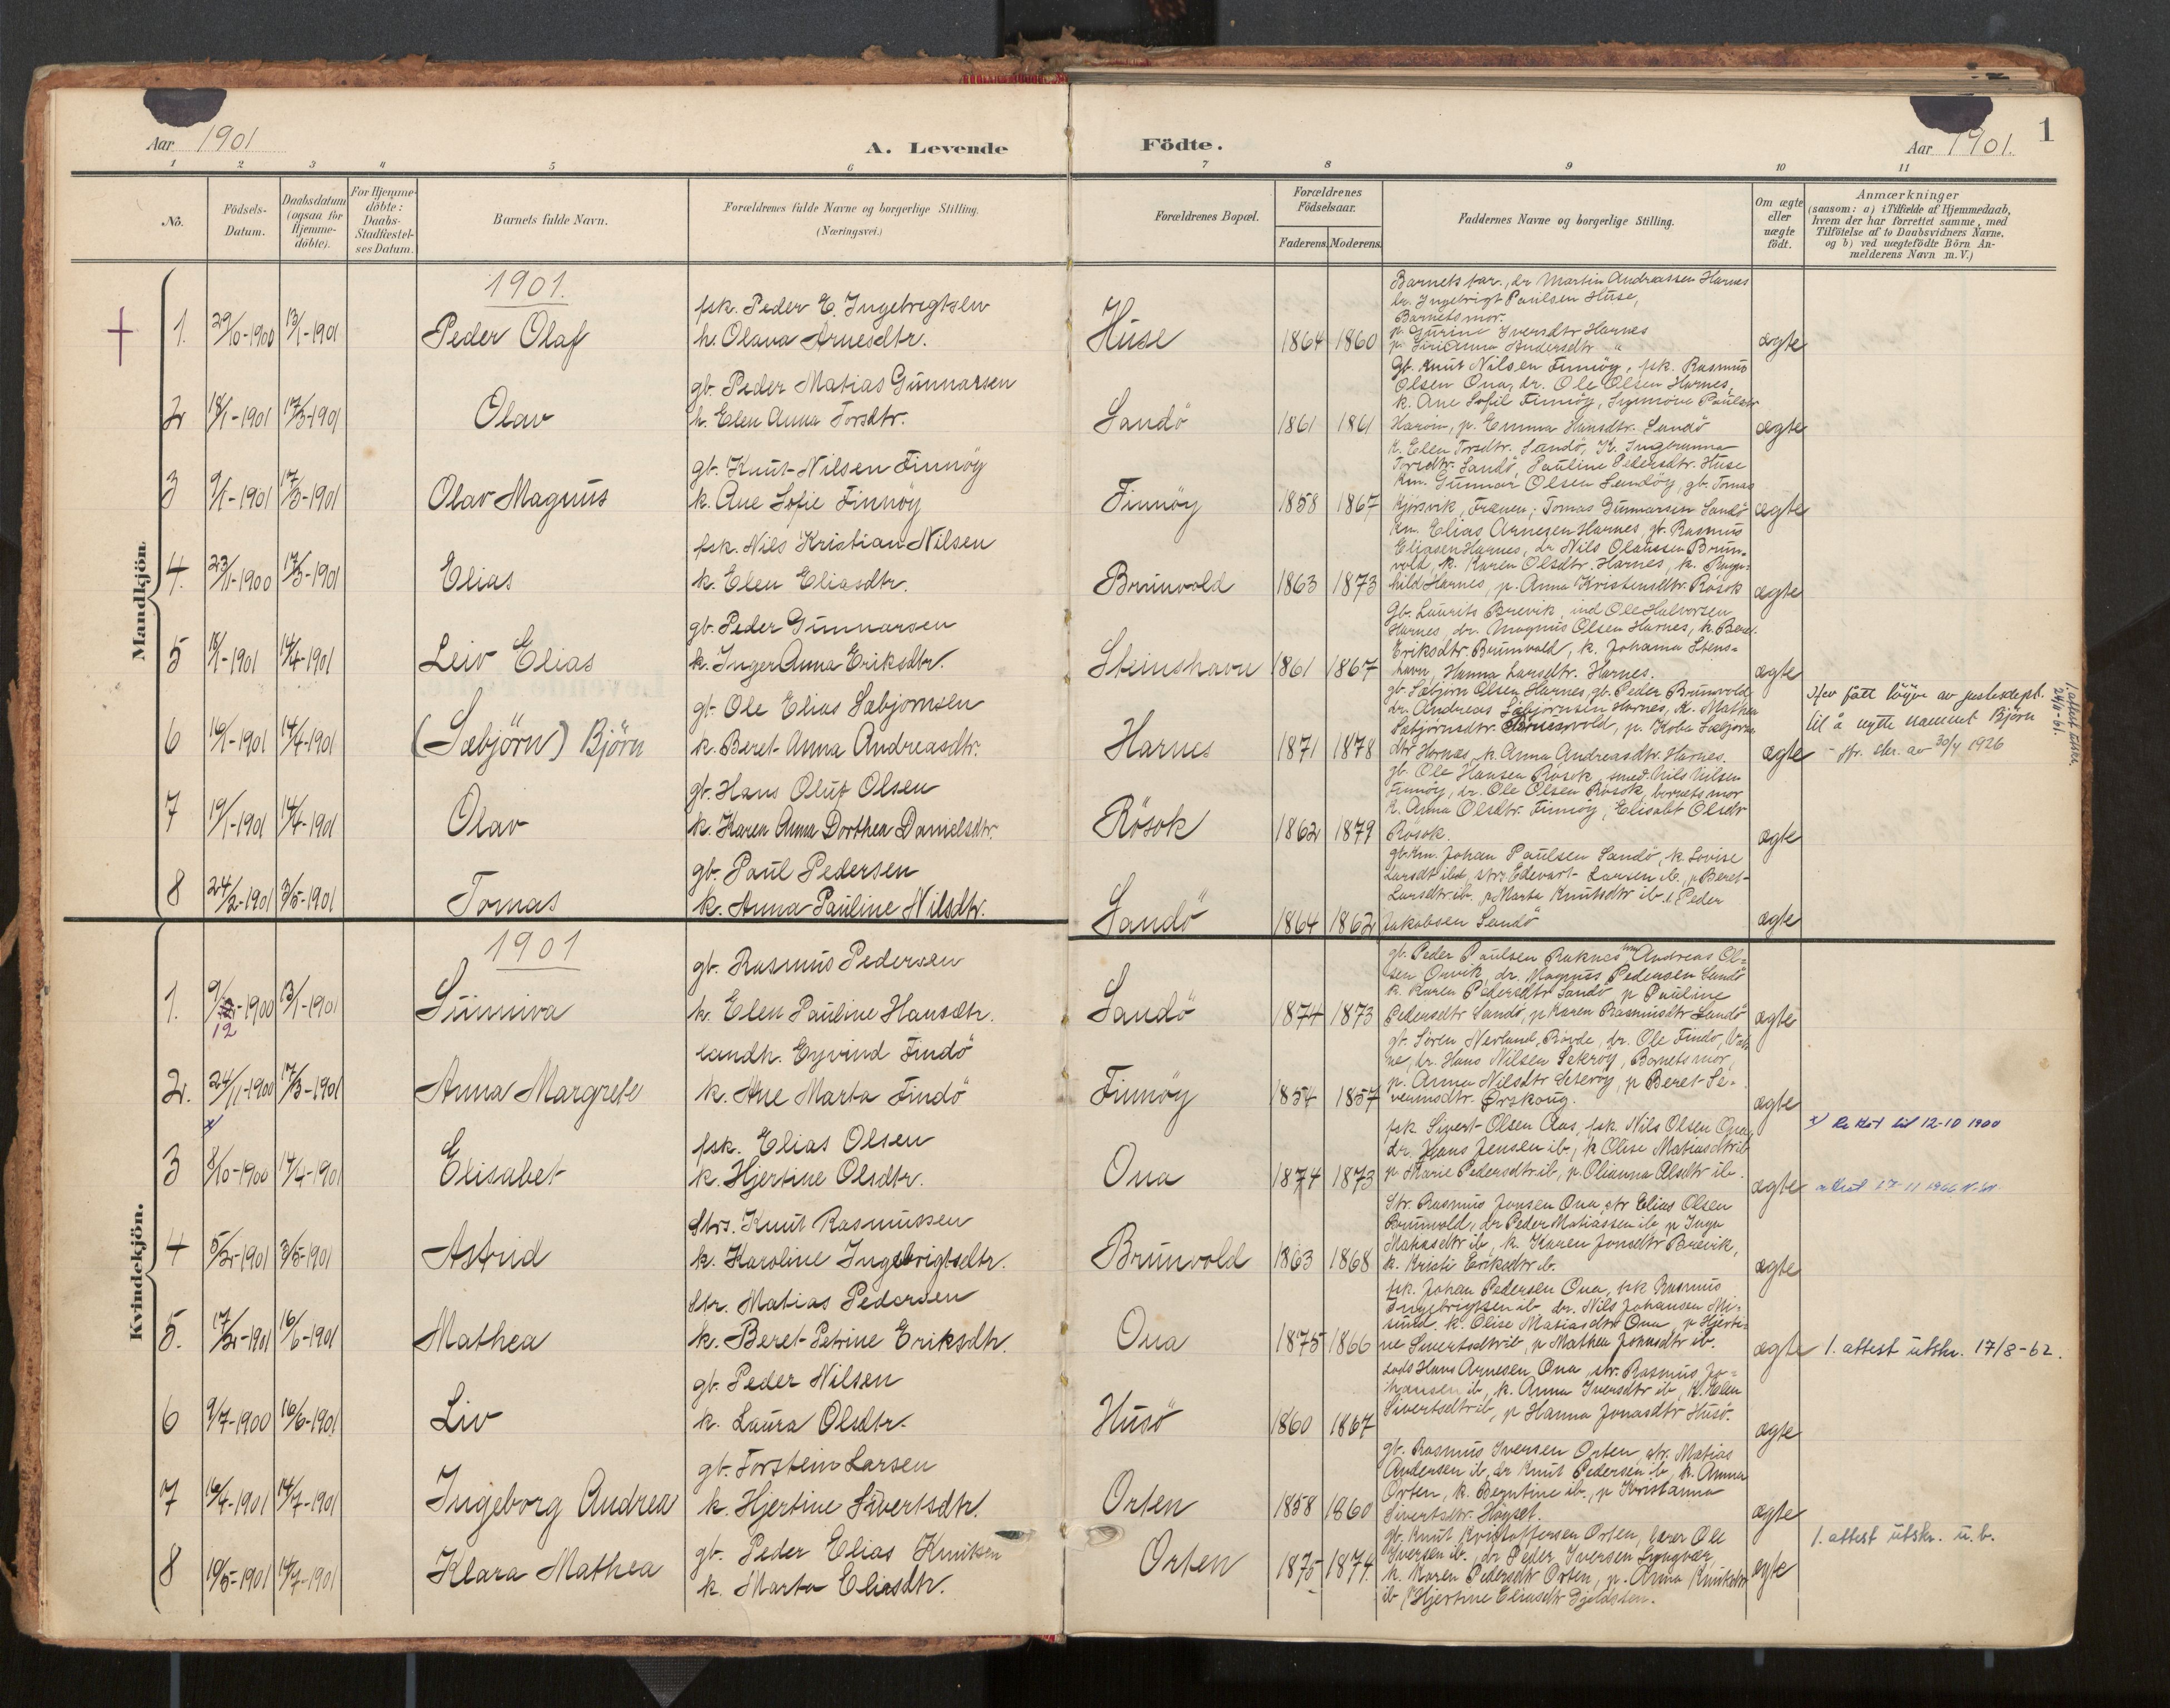 Aar 1901
A. Levende Födte.
Aar 1901.
1
1 2 3 4 5 6 7 8 9 10 11
No.
Födsels-Datum.
Daabsdatum (ogsaa for Hjemme-döbte).
For Hjemme-döbte: Daabs-Stadfæstel-ses Datum.
Barnets fulde Navn.
Forældrenes fulde Navne og borgerlige Stilling.
(Næringsvei.)
Forældrenes Bopæl.
Forældrenes Födselsaar.
Faderens. Moderens.
Faddernes Navne og borgerlige Stilling.
Om ægte eller uægte födt.
Anmærkninger
(saasom: a) i Tilfælde af Hjemmedaab, hvem der har forrettet samme, med Tilföielse af to Daabsvidners Navne, og b) ved uægtefödte Börn Anmelderens Navn m. V.)
Mandkjön
1901.
1. 29/10-1900 13/1-1901 Peder Olaf
fsk. Peder E. Ingebrigtslv
h. Olava Arnesdtr.
Huse 1864 1860
Barnets far, dr Martin Andreassen Harnes
br. Ingebrigt Paulsen Huse,
Barnets mor.
p. Gurine Iversdtr Harnes
ægte
2 18/1-1901 17/3-1901 Olav
gb. Peder Matias Gunnarsen
h. Elen Anna Torsdtr.
Sandö 1861 1861
Gb. Knut Nilsen Finnöy, fsk. Rasmus
Olsen Ona, dr. Ole Olsen Harnes,
k. Ane Sofie Finnöy, Synnöve Paulsdtr
p. Emma Hansdtr. Sandö
ægte
3 9/1-1901 17/3-1901 Olav Magnus
gb. Knut Nilsen Finnöy
k. Ane Sofie Finnöy
Finnöy 1858 1867
K. Elen Torsdtr. Sandö, K. Ingeranna
Torsdtr. Sandö, Pauline Pedersdtr. Huse
Km. Gunnar Olsen Sandöy, gb. Tomas
Kjörsvik, Frænen; Tomas Gunnarsen Sandö
ægte
4. 23/11-1900 17/3-1901 Elias
fsk. Nils Kristian Nilsen
k. Elen Eliasdtr.
Brunvold 1863 1873
Km. Elias Arnesen Harnes, gb. Rasmus
Eliasen Harnes, dr Nils Olaussen Brun-
vold, k. Karen Olsdtr. Harnes, k. Ragn-
hild Harnes, p. Anna Kristensdtr. Rösok
ægte
5 18/1-1901 14/4-1901 Leiv Elias
gb. Peder Gunnarsen
k. Inger Anna Eriksdtr.
Steinshavn 1861 1867
Gb. Laurits Brevik, ind Ole Halvorsen
Harnes, dr. Magnus Olsen Harnes, k. Beret
Eriksdtr. Brunvold, k. Johanna Stens-
havn, Hanna Larsdtr. Harnes.
ægte
6 16/1-1901 14/4-1901 (Sæbjörn) Björn
gb. Ole Elias Sæbjörnsen
k. Beret Anna Andreasdtr.
Harnes 1871 1878
gb. Sæbjörn Olsen Harnes, gb. Peder Brunvold
dr. Andreas Sæbjörnsen Harnes, K. Mathea
dtr Harnes, k. Anna Andreasdtr. Harnes.
ægte
Hev fått löyve av justisdept.
til å nytte namnet Björn
- skr. av 30/4 1926
1. attest utskr.
24/11-61.
7 19/1-1901 14/4-1901 Olav
gb. Hans Oluf Olsen
k. Karen Anna Dorthea Danielsdtr.
Rösok 1862 1879
gb. Ole Hansen Rösok, smed. Nils Nilsen
Finnöy, dr. Ole Olsen Rösok, barnets mor
K. Anna Olsdtr. Finnöy, Elisabt Olsdtr
Rösok.
ægte
8 24/2-1901 3/5-1901 Tomas
gb. Paul Pedersen
k. Anna Pauline Nilsdtr.
Sandö 1864 1862
gbkm. Johan Paulsen Sandö, k. Lovise
Larsdt ibd, str. Edevart Larsen ib., p Beret
Larsdtr ib. p Marta Knutsdtr ib. Peder
Jakobsen Sandö
ægte
Kvindekjön.
1901
1. 9/12-1900 13/1-1901 Sunniva
gb. Rasmus Pedersen
k. Elen Pauline Hansdtr.
Sandö 1874 1873
gb. Peder Paulsen Raknes Andreas Ol-
sen Orvik, dr. Magnus Pedersen Sandö
k. Karen Pedersdtr Sandö p Pauline
Pedersdtr Sandö, p Karen Rasmusdtr Sandö
ægte
2. 24/11-1900 17/3-1901 Anna Margrete
landh. Eyvind Findö
k. Ane Marta Findö
Finnöy 1854 1857
gb. Sören Nerland, Rövde, dr. Ole Findö,
dr. Hans Nilsen Sekröy, Barnets mor,
p. Anna Nilsdtr Sekröy, p Beret Se-
verinsdtr. Örskoug.
ægte
3 8/10-1900 14/4-1901 Elisabet
fsk. Elias Olsen
k. Hjertine Olsdtr.
Ona 1874 1873
fsk Sivert Olsen Aas, fsk. Nils Olsen Ona,
dr. Hans Jensen ib, k Olise Matiasdtr ib
p Marie Pedersdtr ib, p. Olianna Olsdtr ib.
ægte
x) Rettet til 12-10 1900
attest 17-11 1966
4 5/2-1901 3/5-1901 Astrid
Strs. Knut Rasmussen
k. Karoline Ingebrigtsdtr.
Brunvold 1863 1868
Str. Rasmus Jonsen Ona, str Elias Olsen
Brunvold, dr Peder Matiassen ib p Inga
Matiasdtr ib, k. Karen Jonsdtr Brevik,
k. Kristi Eriksdtr ib.
ægte
5. 17/2-1901 16/6-1901 Mathea
Str. Matias Pedersen
k. Beret Petrine Eriksdtr.
Ona 1875 1866
fsk. Johan Pedersen Ona, fsk Rasmus
Ingebrigtsen ib, dr. Nils Johansen Mi-
sund. k. Olise Matiasdtr Ona, p Hjerti-
ne Sivertsdtr ib, p Mathea Jonasdtr ib.
ægte
1. attest utskr. 17/8-62.
6 9/7-1900 16/6-1901 Liv
gb. Peder Nilsen
k. Laura Olsdtr.
Husö 1860 1867
Lods Hans Arnesen Ona, str. Rasmus Jo-
hansen ib, k. Anna Iversdtr ib, K. Elen
Sivertsdtr ib, p Hanna Jonasdtr Husö.
ægte
7 16/4-1901 14/7-1901 Ingeborg Andrea
gb. Torstein Larsen
k. Hjertine Sivertsdtr.
Orten 1858 1860
gb. Rasmus Iversen Orten, str. Matias
Andersen ib, dr Knut Pedersen ib, k. Anna
Orten, k. Bergitine ib., p Kristianna
Sivertsdtr. Höyset.
ægte
8 19/5-1901 14/7-1901 Klara Mathea
gb. Peder Elias Knutsen
k. Marta Eliasdtr.
Orten 1875 1874
gb. Knut Kristoffersen Orten, lærer Ole
Iversen ib. dr Peder Iversen Lyngvær,
k. Karen Pedersdtr Orten, p. Anna Knutsdtr
ib, Hjertine Eliasdtr Gjeldsten.
ægte
1. attest utskr. u.b.